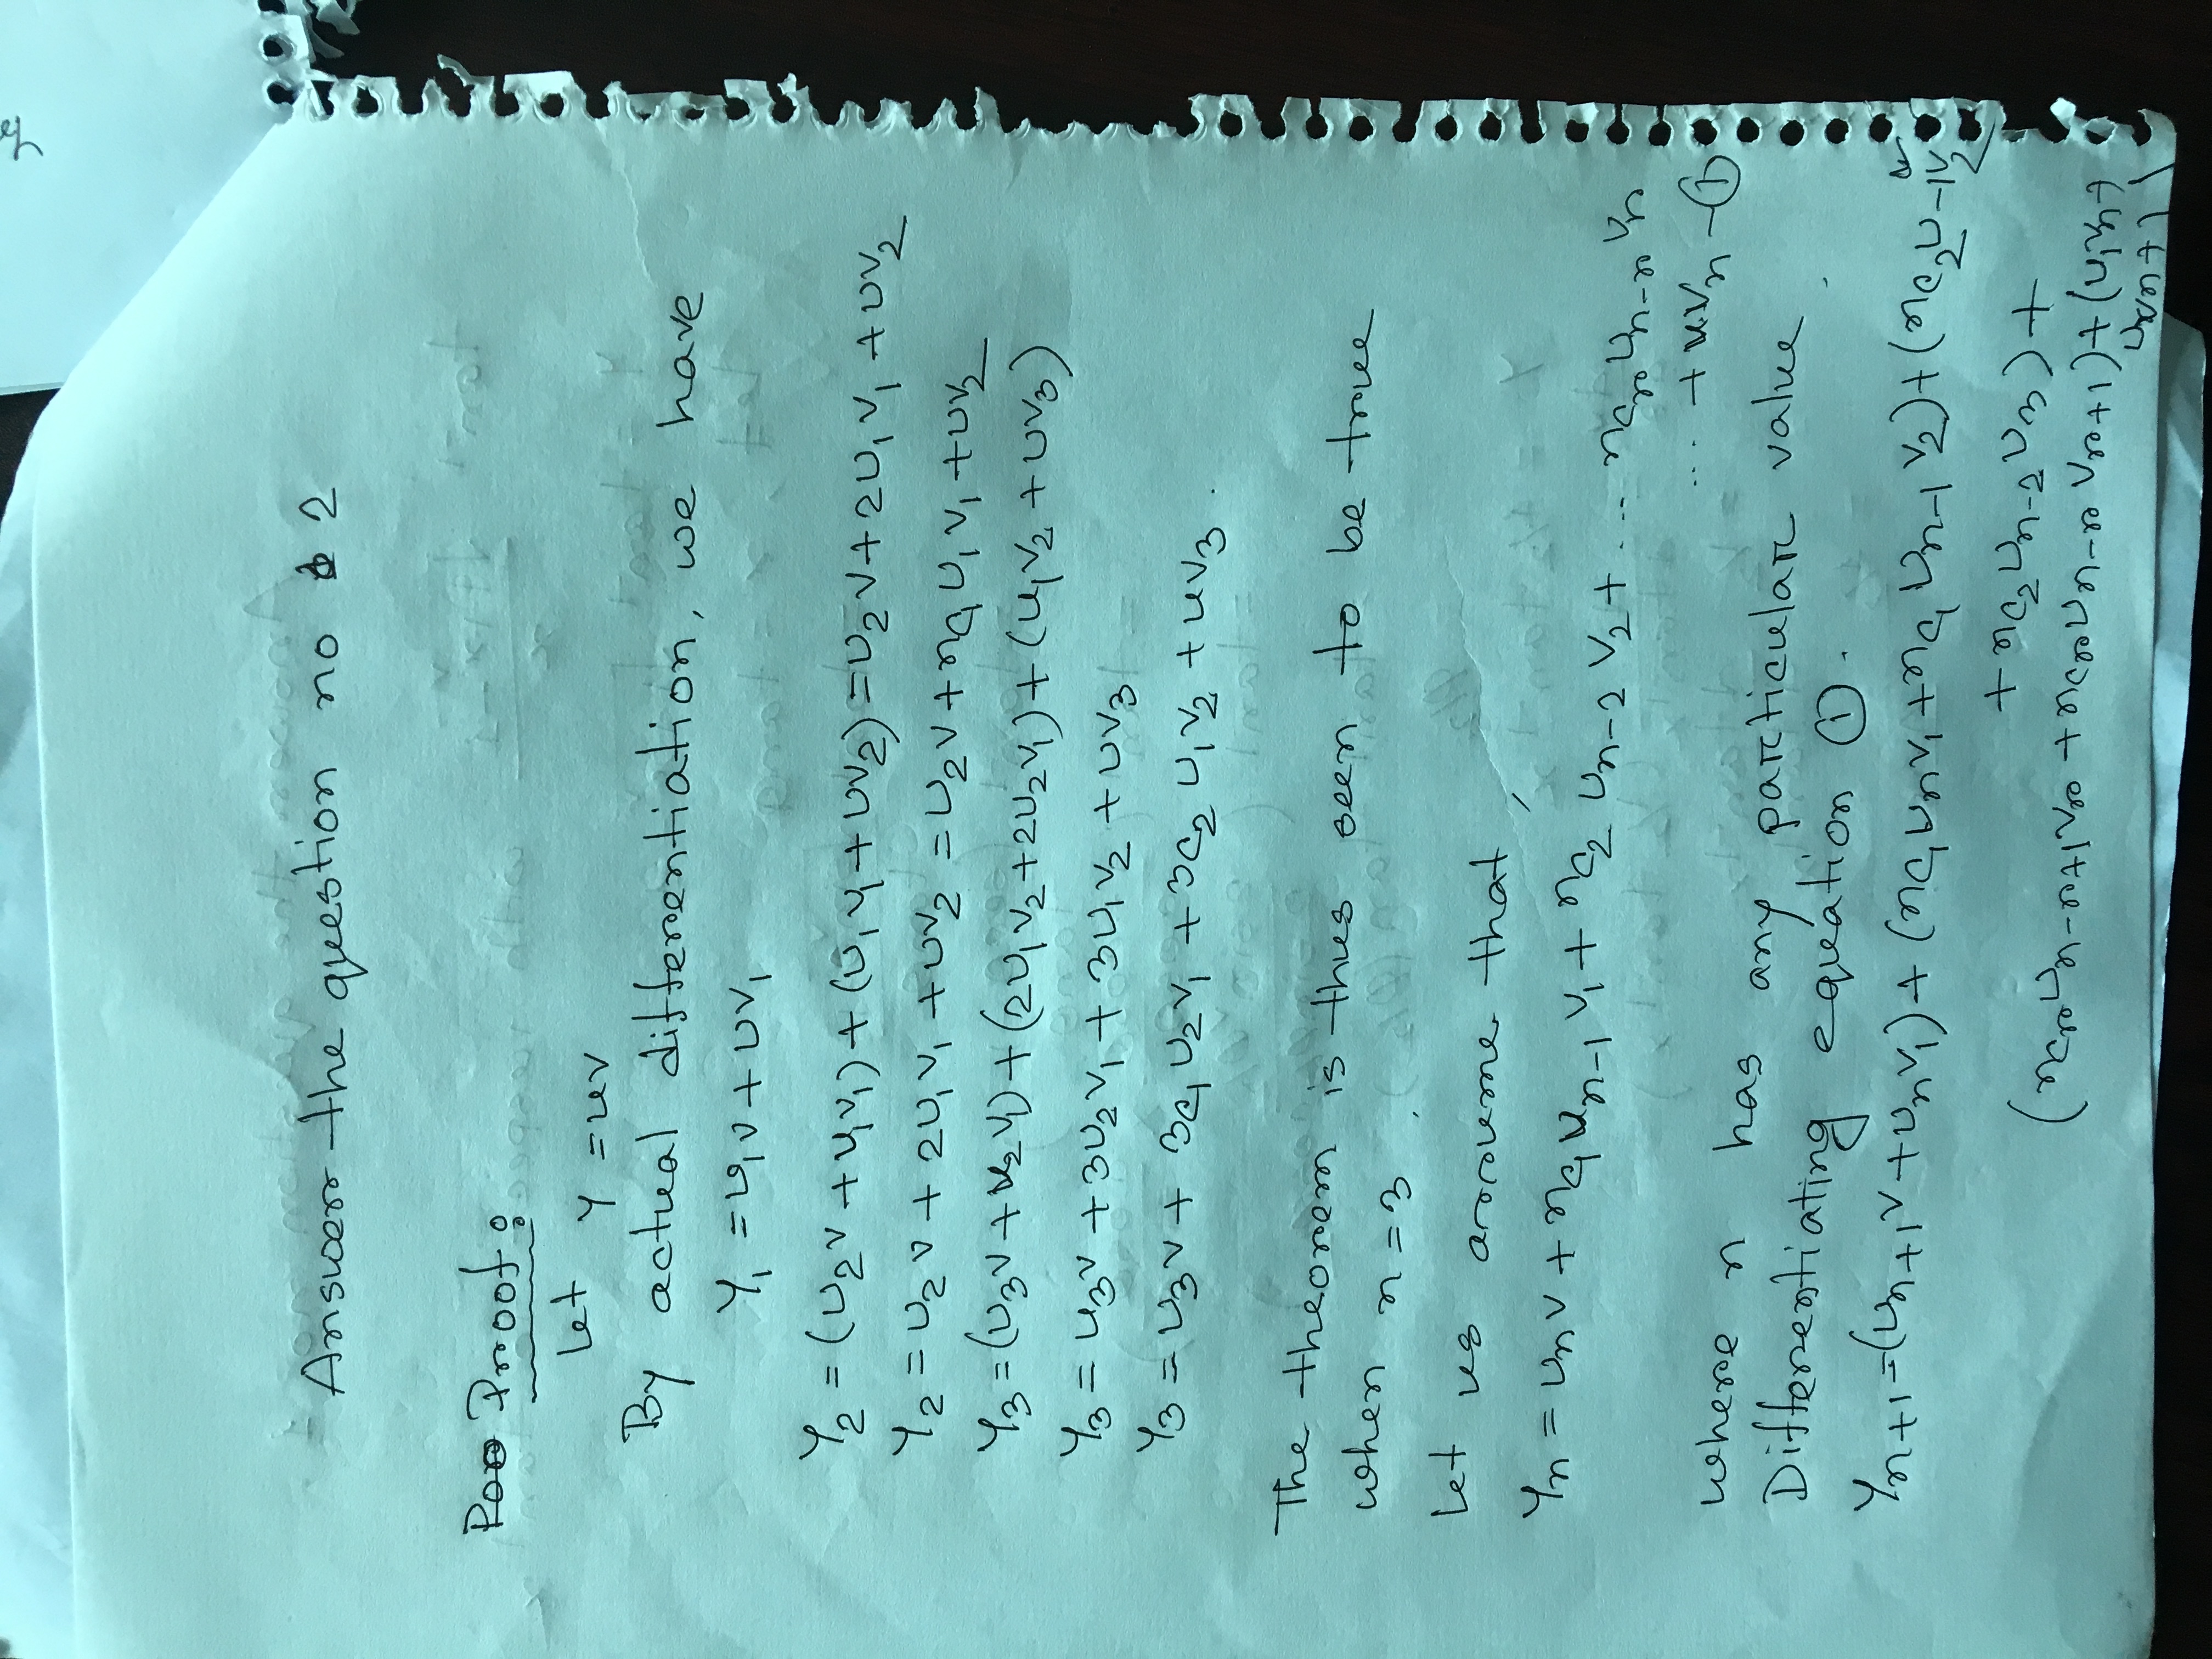 Answer the question no 2
Proof:
Let y = uv
By actual differentiation, we have
y₁ = u₁v + uv₁
y₂ = (u₂v + u₁v₁) + (u₁v₁ + uv₂) = u₂v + 2u₁v₁ + uv₂
y₂ = u₂v + 2u₁v₁ + uv₂ = u₂v + nc₁ u₁v₁ + uv₂
y₃ = (u₃v + u₂v₁) + (2u₁v₂ + 2u₂v₁) + (u₁v₂ + uv₃)
y₃ = u₃v + 3u₂v₁ + 3u₁v₂ + uv₃
y₃ = u₃v + 3c₁ u₂v₁ + 3c₂ u₁v₂ + uv₃.
The theorem is thus seen to be true
when n = 3.
Let us assume that,
yn = unv + nc₁ un-1 v₁ + nc₂ un-2 v₂ + .... ncr un-r vr
... + uvn - ①
where n has any particular value.
Differentiating equation ①.
yn+1 = (un+1v + unv₁) + (nc₁ unv₁ + nc₁ un-1 v₂) + (nc₂ u-1v₂
+ nc₂ un-2 v₃) +
(ncr un-r+1 vr + ncr un-r vr+1) + (u₁vn +
uvn+1)